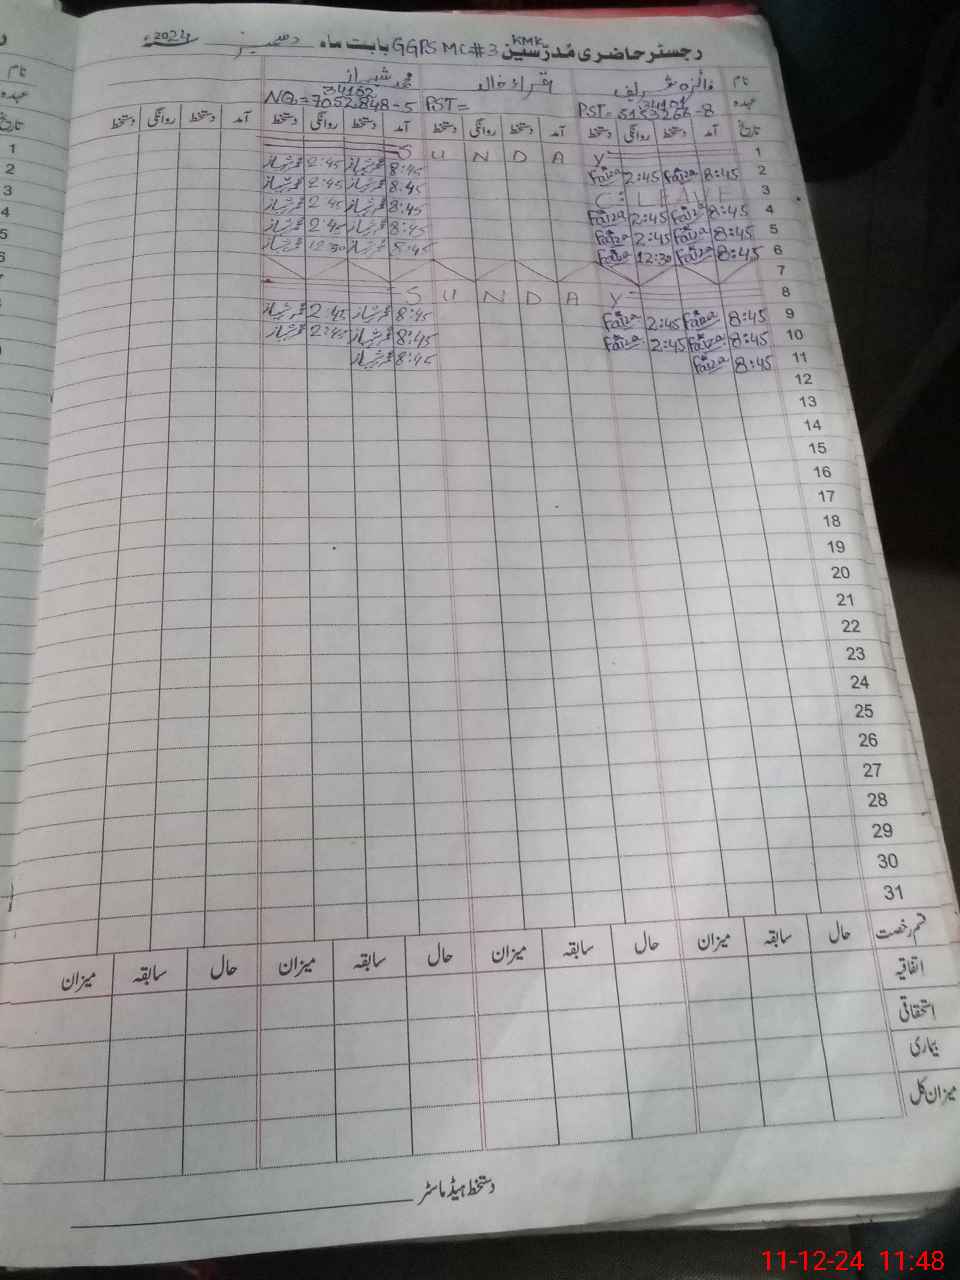 رجسٹر حاضری مُدرسین KMK GGPS MC#3 بابت ماہ دسمبر 2024ء
نام فائزہ شریف اقراء خالد محمد شیراز
عہدہ PST= PST= NQ=7052848-5
34162
تاریخ آمد دستخط روانگی دستخط آمد دستخط روانگی دستخط آمد دستخط روانگی دستخط آمد دستخط روانگی دستخط
1 S U N D A Y
2 8:45 Faiza 2:45 Faiza 8:45 2:45
3 C: LEAVE 8:45 2:45
4 8:45 Faiza 2:45 Faiza 8:45 2:45
5 8:45 Faiza 2:45 Faiza 8:45 2:45
6 8:45 Faiza 12:30 Faiza 8:45 12:30
7
8 S U N D A Y
9 8:45 Faiza 2:45 Faiza 8:45 2:45
10 8:45 Faiza 2:45 Faiza 8:45 2:45
11 8:45 Faiza 8:45
12
13
14
15
16
17
18
19
20
21
22
23
24
25
26
27
28
29
30
31
قسم رخصت حال سابقہ میزان حال سابقہ میزان حال سابقہ میزان حال سابقہ میزان
اتفاقیہ
استحقاقی
بیماری
میزان کل
دستخط ہیڈ ماسٹر
11-12-24 11:48